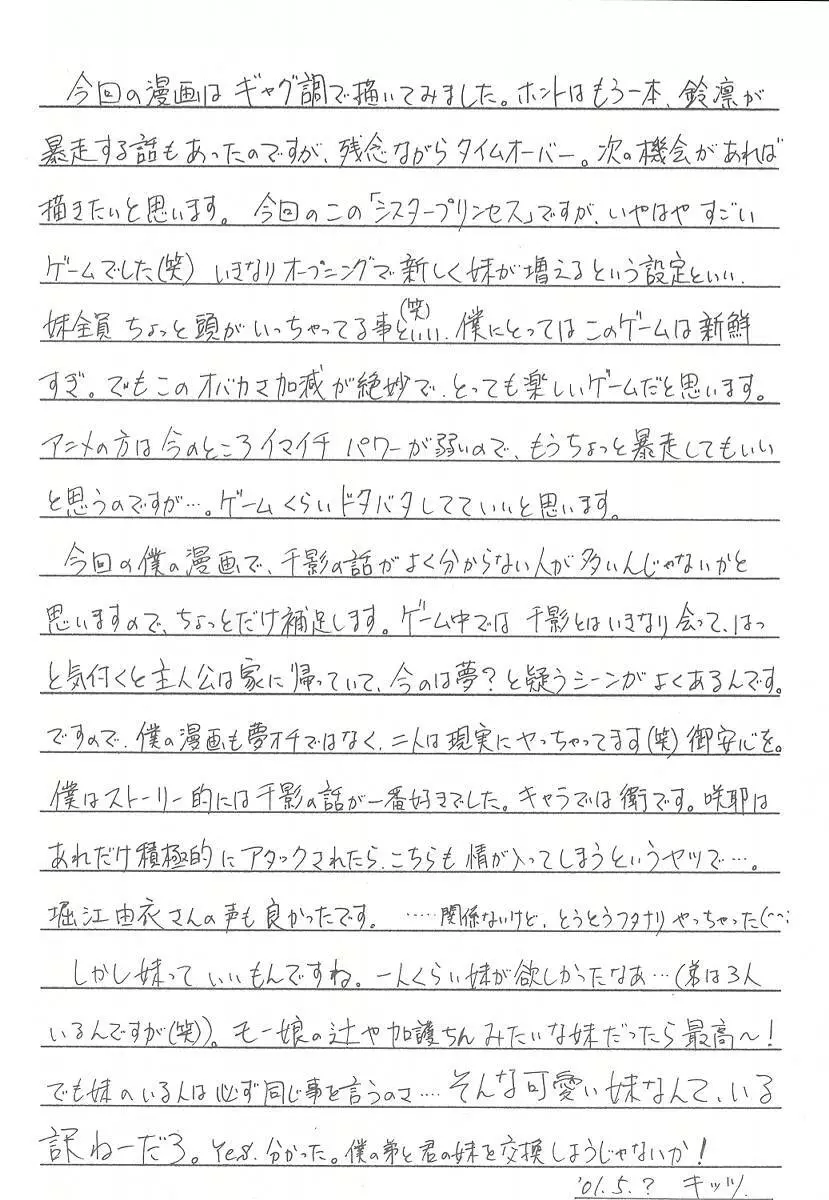 今回の漫画はギャグ調で描いてみました。ホントはもう一本、鈴凛が
暴走する話もあったのですが、残念ながらタイムオーバー。次の機会があれば
描きたいと思います。今回のこの「シスタープリンセス」ですが、いやはやすごい
ゲームでした(笑) いきなりオープニングで新しく妹が増えるという設定といい、
妹全員ちょっと頭がいっちゃってる事といい(笑)、僕にとってはこのゲームは新鮮
すぎ。でもこのオバカさ加減が絶妙で、とっても楽しいゲームだと思います。
アニメの方は今のところイマイチパワーが弱いので、もうちょっと暴走してもいい
と思うのですが…。ゲームくらいドタバタしてていいと思います。
今回の僕の漫画で、千影の話がよく分からない人が多いんじゃないかと
思いますので、ちょっとだけ補足します。ゲーム中では千影とはいきなり会って、はっ
と気付くと主人公は家に帰っていて、今のは夢?と疑うシーンがよくあるんです。
ですので、僕の漫画も夢オチではなく、二人は現実にヤっちゃってます(笑) 御安心を。
僕はストーリー的には千影の話が一番好きでした。キャラでは衛です。咲耶は
あれだけ積極的にアタックされたら、こちらも情が入ってしまうというヤツで…。
堀江由衣さんの声も良かったです。……関係ないけど、とうとうフタナリやっちゃった(^^;
しかし妹っていいもんですね。一人くらい妹が欲しかったなあ…(弟は3人
いるんですが(笑))。モー娘の辻や加護ちんみたいな妹だったら最高〜!
でも妹のいる人は必ず同じ事を言うのさ‥‥そんな可愛い妹なんて、いる
訳ねーだろ。Yes.分かった。僕の弟と君の妹を交換しようじゃないか!
'01.5.? キッツ